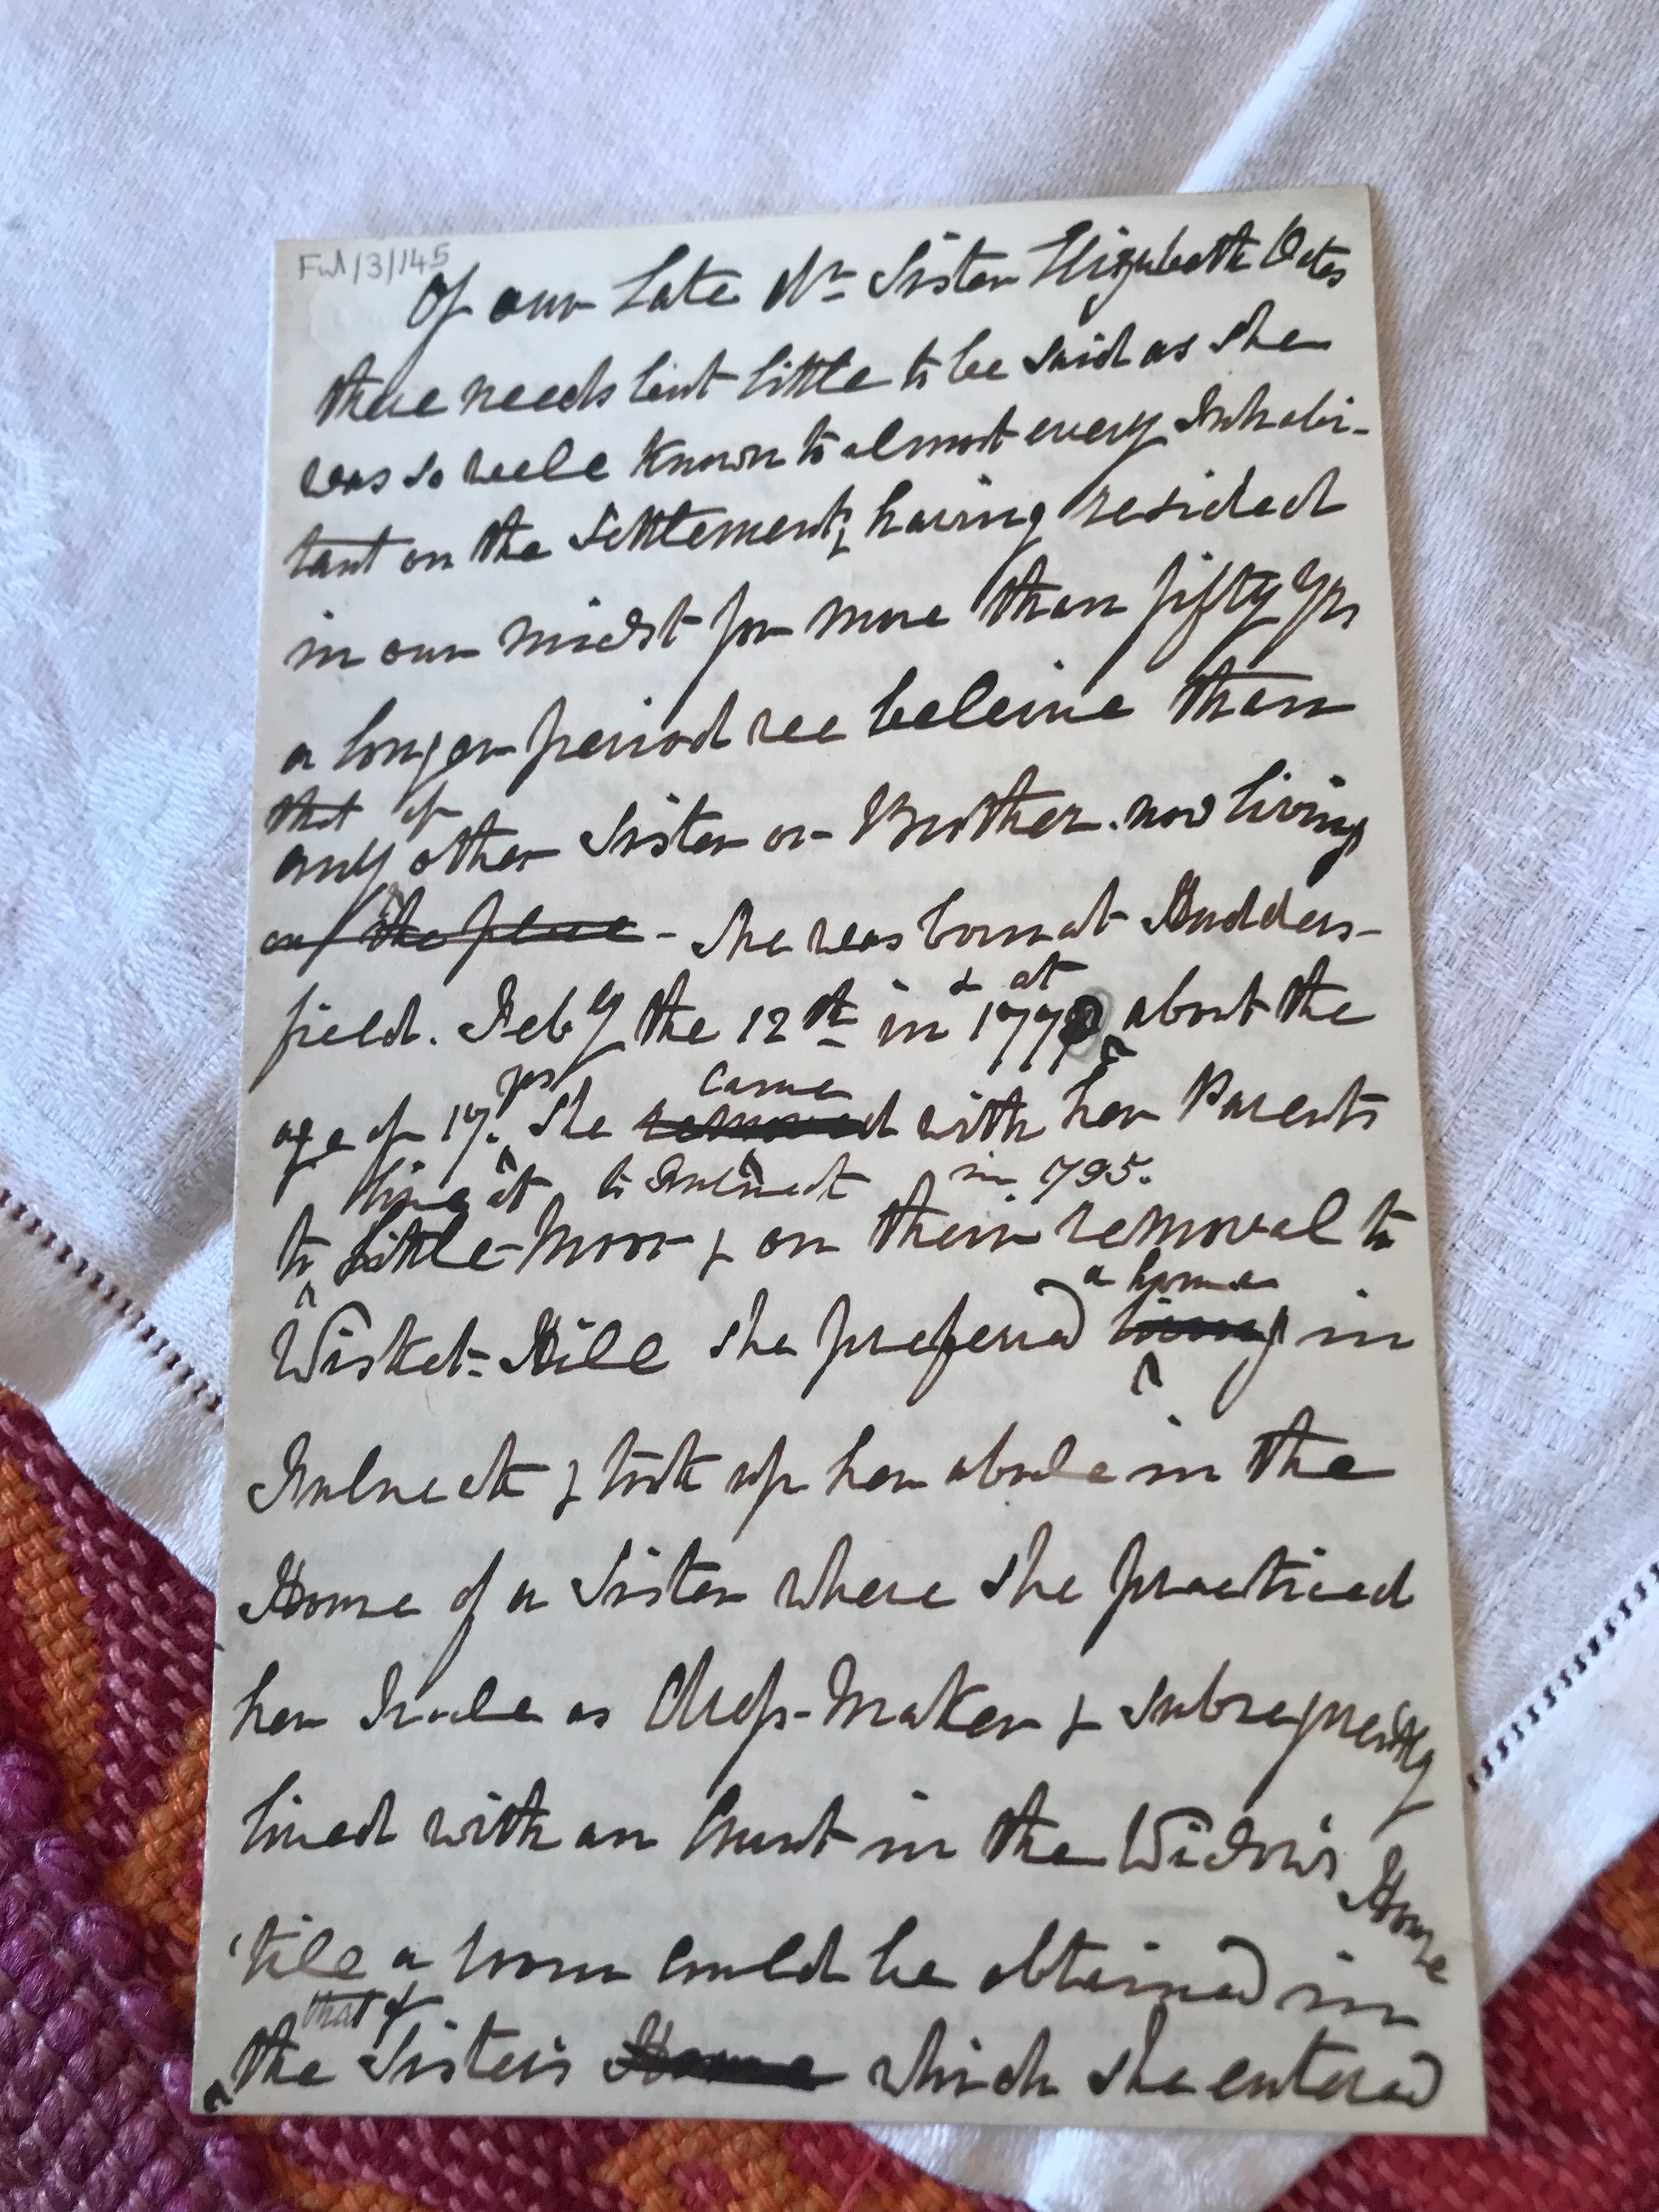 Ful/3/145
Of our Late Dr Sister Elizabeth Oates
there needs but little to be said as she
was so well known to almost every Inhabi-
tant on the Settlement, having resided
in our midst for more than fifty yrs
a longer period we beleive than
that of
any other Sister or Brother now living
on the place - She was born at Hudders-
field. Feby the 12th in 1770 about the
& at
age of 17. She removed with her Parents
yrs came
live at to Fulneck in 1795.
to Little-Moor & on their removal to
a home
Wisket-Hill she prefered living in
Fulneck & took up her abode in the
House of a Sister where she practiced
her Trade as Dress-Maker & subsequently
lived with an Aunt in the Widow's House
'till a room could be obtained in
that of
the Sister's House which she entered